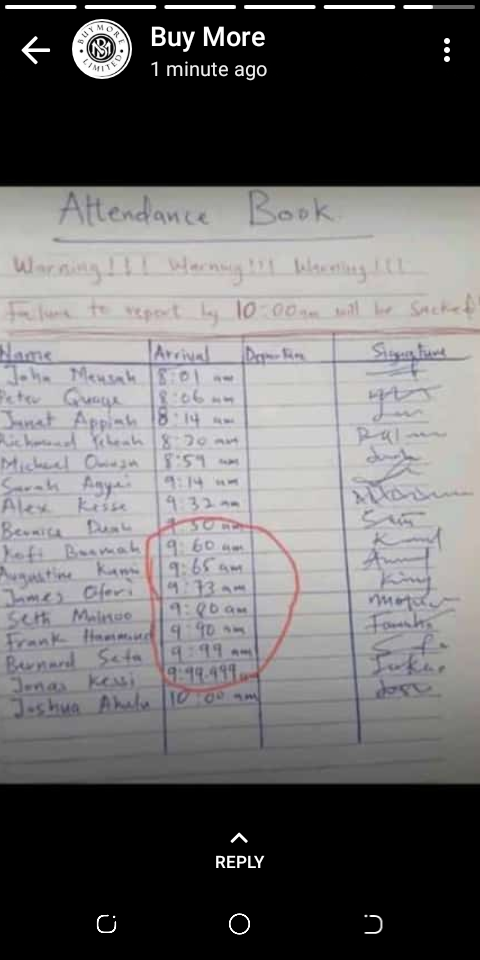 Buy More
1 minute ago
BUYMORE LIMITED
Attendance Book
Warning!!! Warning!!! Warning!!!
Failure to report by 10:00am will be sacked!
Name Arrival Departure Signature
John Mensah 8:01 am
Peter Quaye 8:06 am
Janet Appiah 8:14 am
Richmond Yeboah 8:20 am
Michael Owusu 8:59 am
Sarah Agyei 9:14 am
Alex Kesse 9:32 am
Bernice Duah 9:50 am
Kofi Boamah 9:60 am
Augustine Kumi 9:65 am
James Ofori 9:73 am
Seth Mainoo 9:80 am
Frank Hammond 9:90 am
Bernard Seta 9:99 am
Jonas Kessi 9:99.999am
Joshua 10:00 am
REPLY